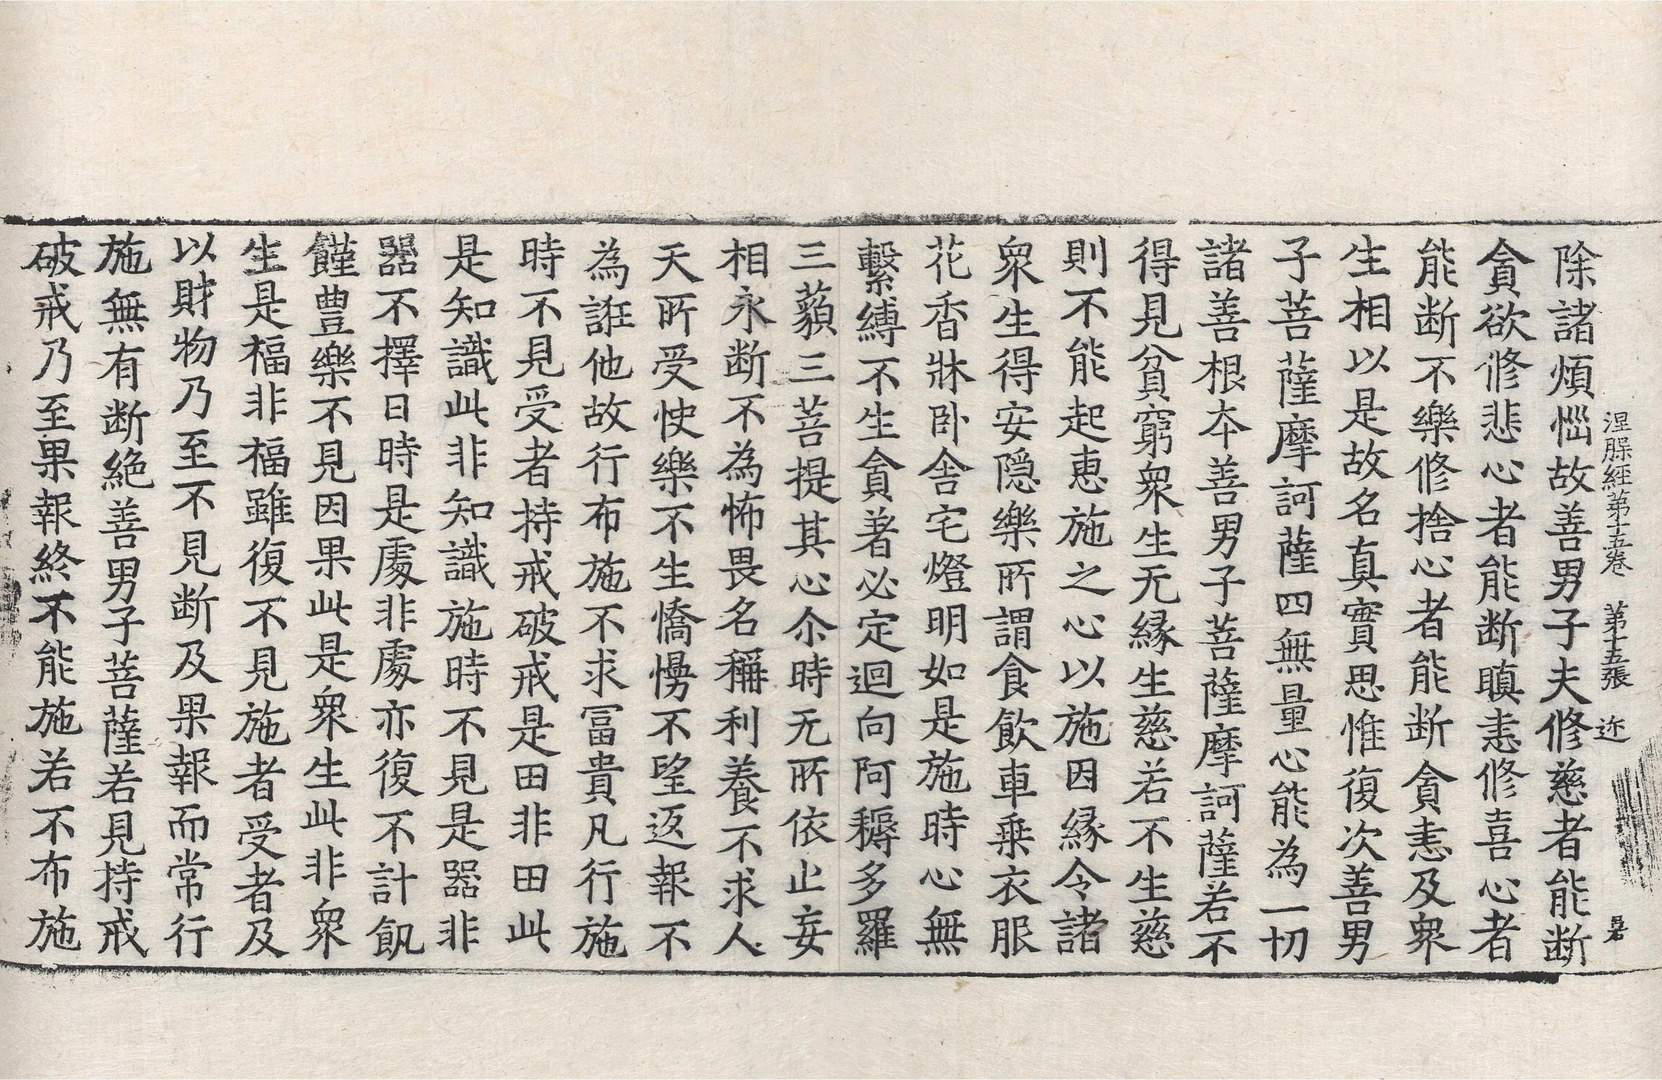 涅槃經第十五卷　第十五張　迩
除諸煩惱故善男子夫修慈者能断
貪欲修悲心者能断瞋恚修喜心者
能断不樂修捨心者能断貪恚及衆
生相以是故名真實思惟復次善男
子菩薩摩訶薩四無量心能為一切
諸善根夲善男子菩薩摩訶薩若不
得見貧窮衆生无緣生慈若不生慈
則不能起恵施之心以施因緣令諸
衆生得安隠樂所謂食飲車乗衣服
花香牀卧舍宅燈明如是施時心無
繫縛不生貪著必定迴向阿耨多羅
三藐三菩提其心尒時无所依止妄
相永断不為怖畏名稱利養不求人
天所受快樂不生憍慢不望返報不
為誑他故行布施不求冨貴凡行施
時不見受者持戒破戒是田非田此
是知識此非知識施時不見是器非
器不擇日時是處非處亦復不計飢
饉豊樂不見因果此是衆生此非衆
生是福非福雖復不見施者受者及
以財物乃至不見断及果報而常行
施無有断絶善男子菩薩若見持戒
破戒乃至果報終不能施若不布施